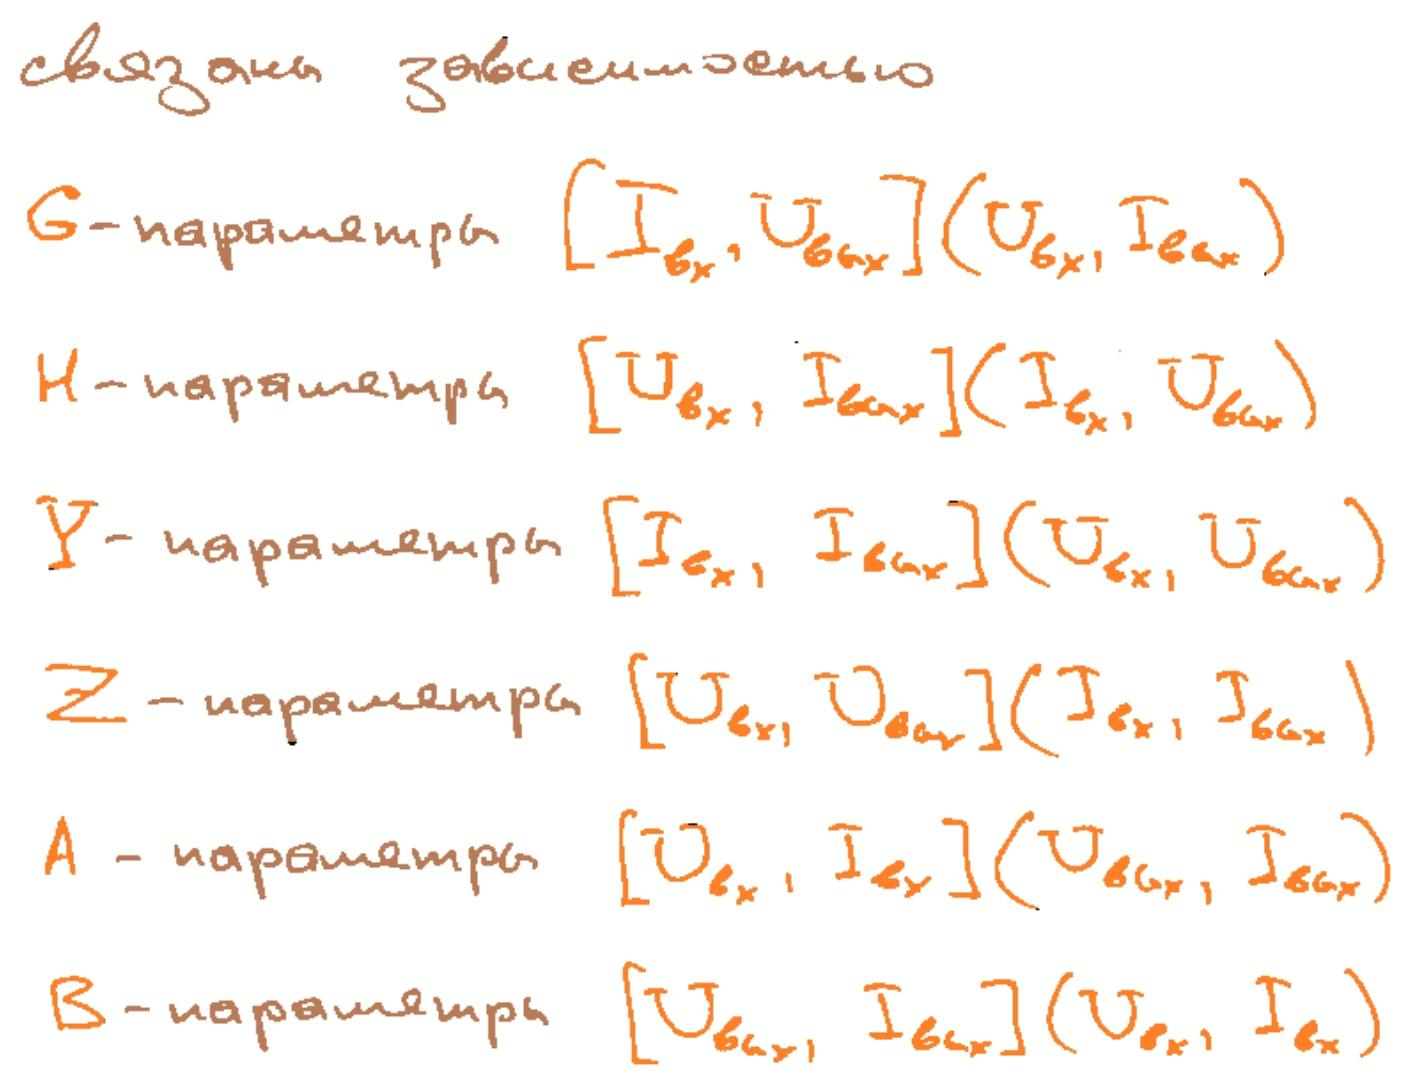 связаны зависимостью
G - параметры [Iвх, Uвых](Uвх, Iвых)
H - параметры [Uвх, Iвых](Iвх, Uвых)
Y - параметры [Iвх, Iвых](Uвх, Uвых)
Z - параметры [Uвх, Uвых](Iвх, Iвых)
A - параметры [Uвх, Iвх](Uвых, Iвых)
B - параметры [Uвых, Iвых](Uвх, Iвх)